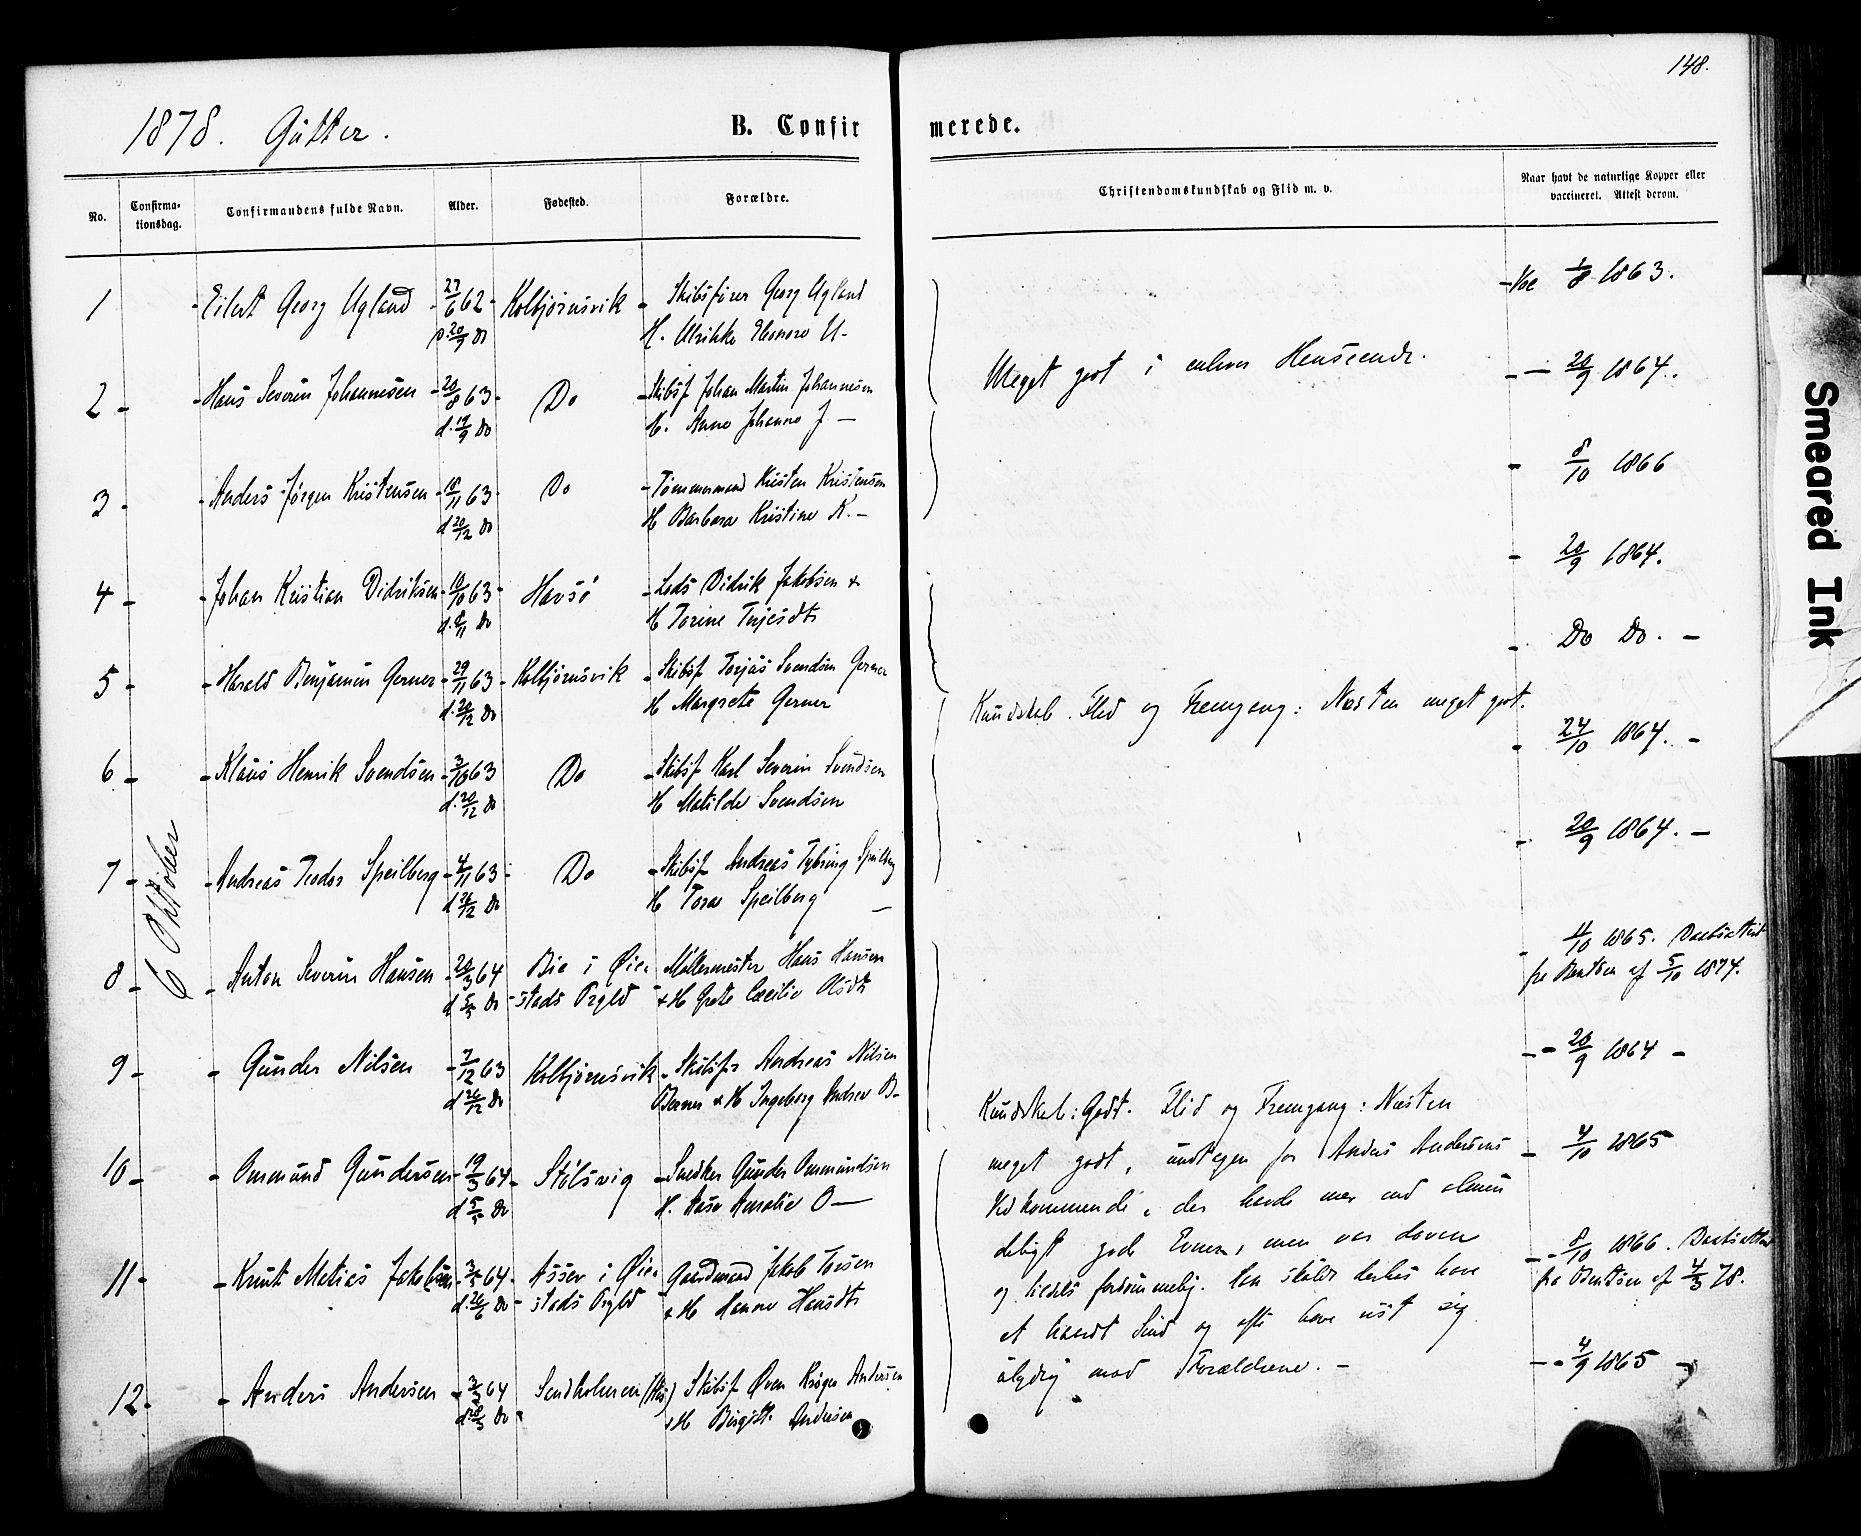 148.
1878. Gutter.
B. Confirmerede.
No.
Confirma-
tionsdag.
Confirmandens fulde Navn.
Alder.
Fødested.
Forældre.
Christendomskundskab og Flid m. v.
Naar havt de naturlige Kopper eller
vaccineret. Attest derom.
6 Oktober
1 - Eilert Georg Ugland - 27/6 62 - Kolbjørnsvik - Skibsfører Georg Ugland
20/9 Do H. Ulrikke Eleonore U-
1/8 1863.
2 - Hans Severin Johannesen - 20/8 63 - Do - Skibsf Johan Martin Johannesen
d. 19/9 Do H. Anne Johanne J -
- 20/9 1864.
Meget godt i enhver Henseende.
3 - Anders Jørgen Kristensen - 18/11 63 - Do - Tømmermand Kristen Kristensen
d 20/12 Do H Barbara Kristine K. -
- 8/10 1866
4 - Johan Kristian Didriksen - 10/10 63 - Havsö - Lods Didrik Jakobsen +
d. 8/11 Do H Torine Terjesdtr
- 20/9 1864.
5 - Harald Benjamin Gerner - 29/11 63 - Kolbjørnsvik - Skibsf Terjus Svendsen Gerner
d. 20/12 Do H Margrete Gerner
- Do Do. -
Kundskab. Flid og Fremgang: Næsten meget godt.
6 - Klaus Henrik Svendsen - 3/10 63 Do - Skibsf Karl Severin Svendsen
d. 20/12 Do H Matilde Svendsen
- 24/10 1864. -
7 - Andreas Teodor Speilberg - 4/11 63 - Do - Skibsf Andreas Tybring Speilberg
d 26/12 Do H Tora Speilberg -
- 20/9 1864. -
8 - Anton Severin Hansen - 20/3 64 Bie i Øie- Møllermester Hans Hansen
d 5/5 Do - stads Prgld - + H Grete Cecilie Olsdtr
- 4/10 1865. Daabsattest
fra Bentsen af 5/10 1874.
9 - Gunder Nilsen - 7/12 63 Kolbjørnsvik - Skibsfr Andreas Nilsen
d 26/12 Do Berner + H Ingeborg Andrea B-
- - 20/9 1864 -
10 - Ommund Gundersen - 19/3 64 - Stølsvig - Snedker Gunder Ommundsen
d 5/5 Do H. Aase Amalie O -
- 4/10 1865
11 - Knut Matias Jakobsen - 3/5 64 - Asser i Øie- Gaardmand Jakob Torsen
d. 26/6 Do - stads Prgld + H Hanne Hansdtr
- - 8/10 1866. Daabsattest
fra Bentsen af 4/3 78.
12 - Anders Andersen - 3/3 64 Sandholmen (His) Skibsf Øven Krøger Andersen
d 28/3 Do + H Birgitte Andersen
- - 4/9 1865 -
Kundskab: Godt. Flid og Fremgang: Næsten
meget godt, undtagen for Anders Andersens
Vedkommende, der havde mer end almin
deligt gode Evner, men var doven
og tildels forsømmelig. Han skulde derhos have
et haardt Sind og ofte have vist sig
ulydig mod Forældrene. -
Smeared Ink